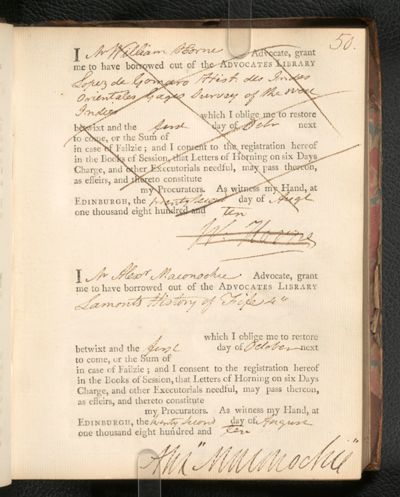 50.
I Mr William Horne Advocate, grant
me to have borrowed out of the ADVOCATES LIBRARY
Lopez de Gomara Hist. des Indes
Orientales Gages Survey of the West
Indies
which I oblige me to restore
betwixt and the first day of Octr next
to come, or the Sum of
in case of Failzie; and I consent to the registration hereof
in the Books of Session, that Letters of Horning on six Days
Charge, and other Executorials needful, may pass thereon,
as effeirs, and thereto constitute
my Procurators. As witness my Hand, at
EDINBURGH, the twenty second day of Augt
one thousand eight hundred and ten
Wm Horne
I Mr Alexr Maconochie Advocate, grant
me to have borrowed out of the ADVOCATES LIBRARY
Lamonts History of Fife 4o
which I oblige me to restore
betwixt and the first day of October next
to come, or the Sum of
in case of Failzie; and I consent to the registration hereof
in the Books of Session, that Letters of Horning on six Days
Charge, and other Executorials needful, may pass thereon,
as effeirs, and thereto constitute
my Procurators. As witness my Hand, at
EDINBURGH, the twenty second day of August
one thousand eight hundred and ten
Alexr Maconochie